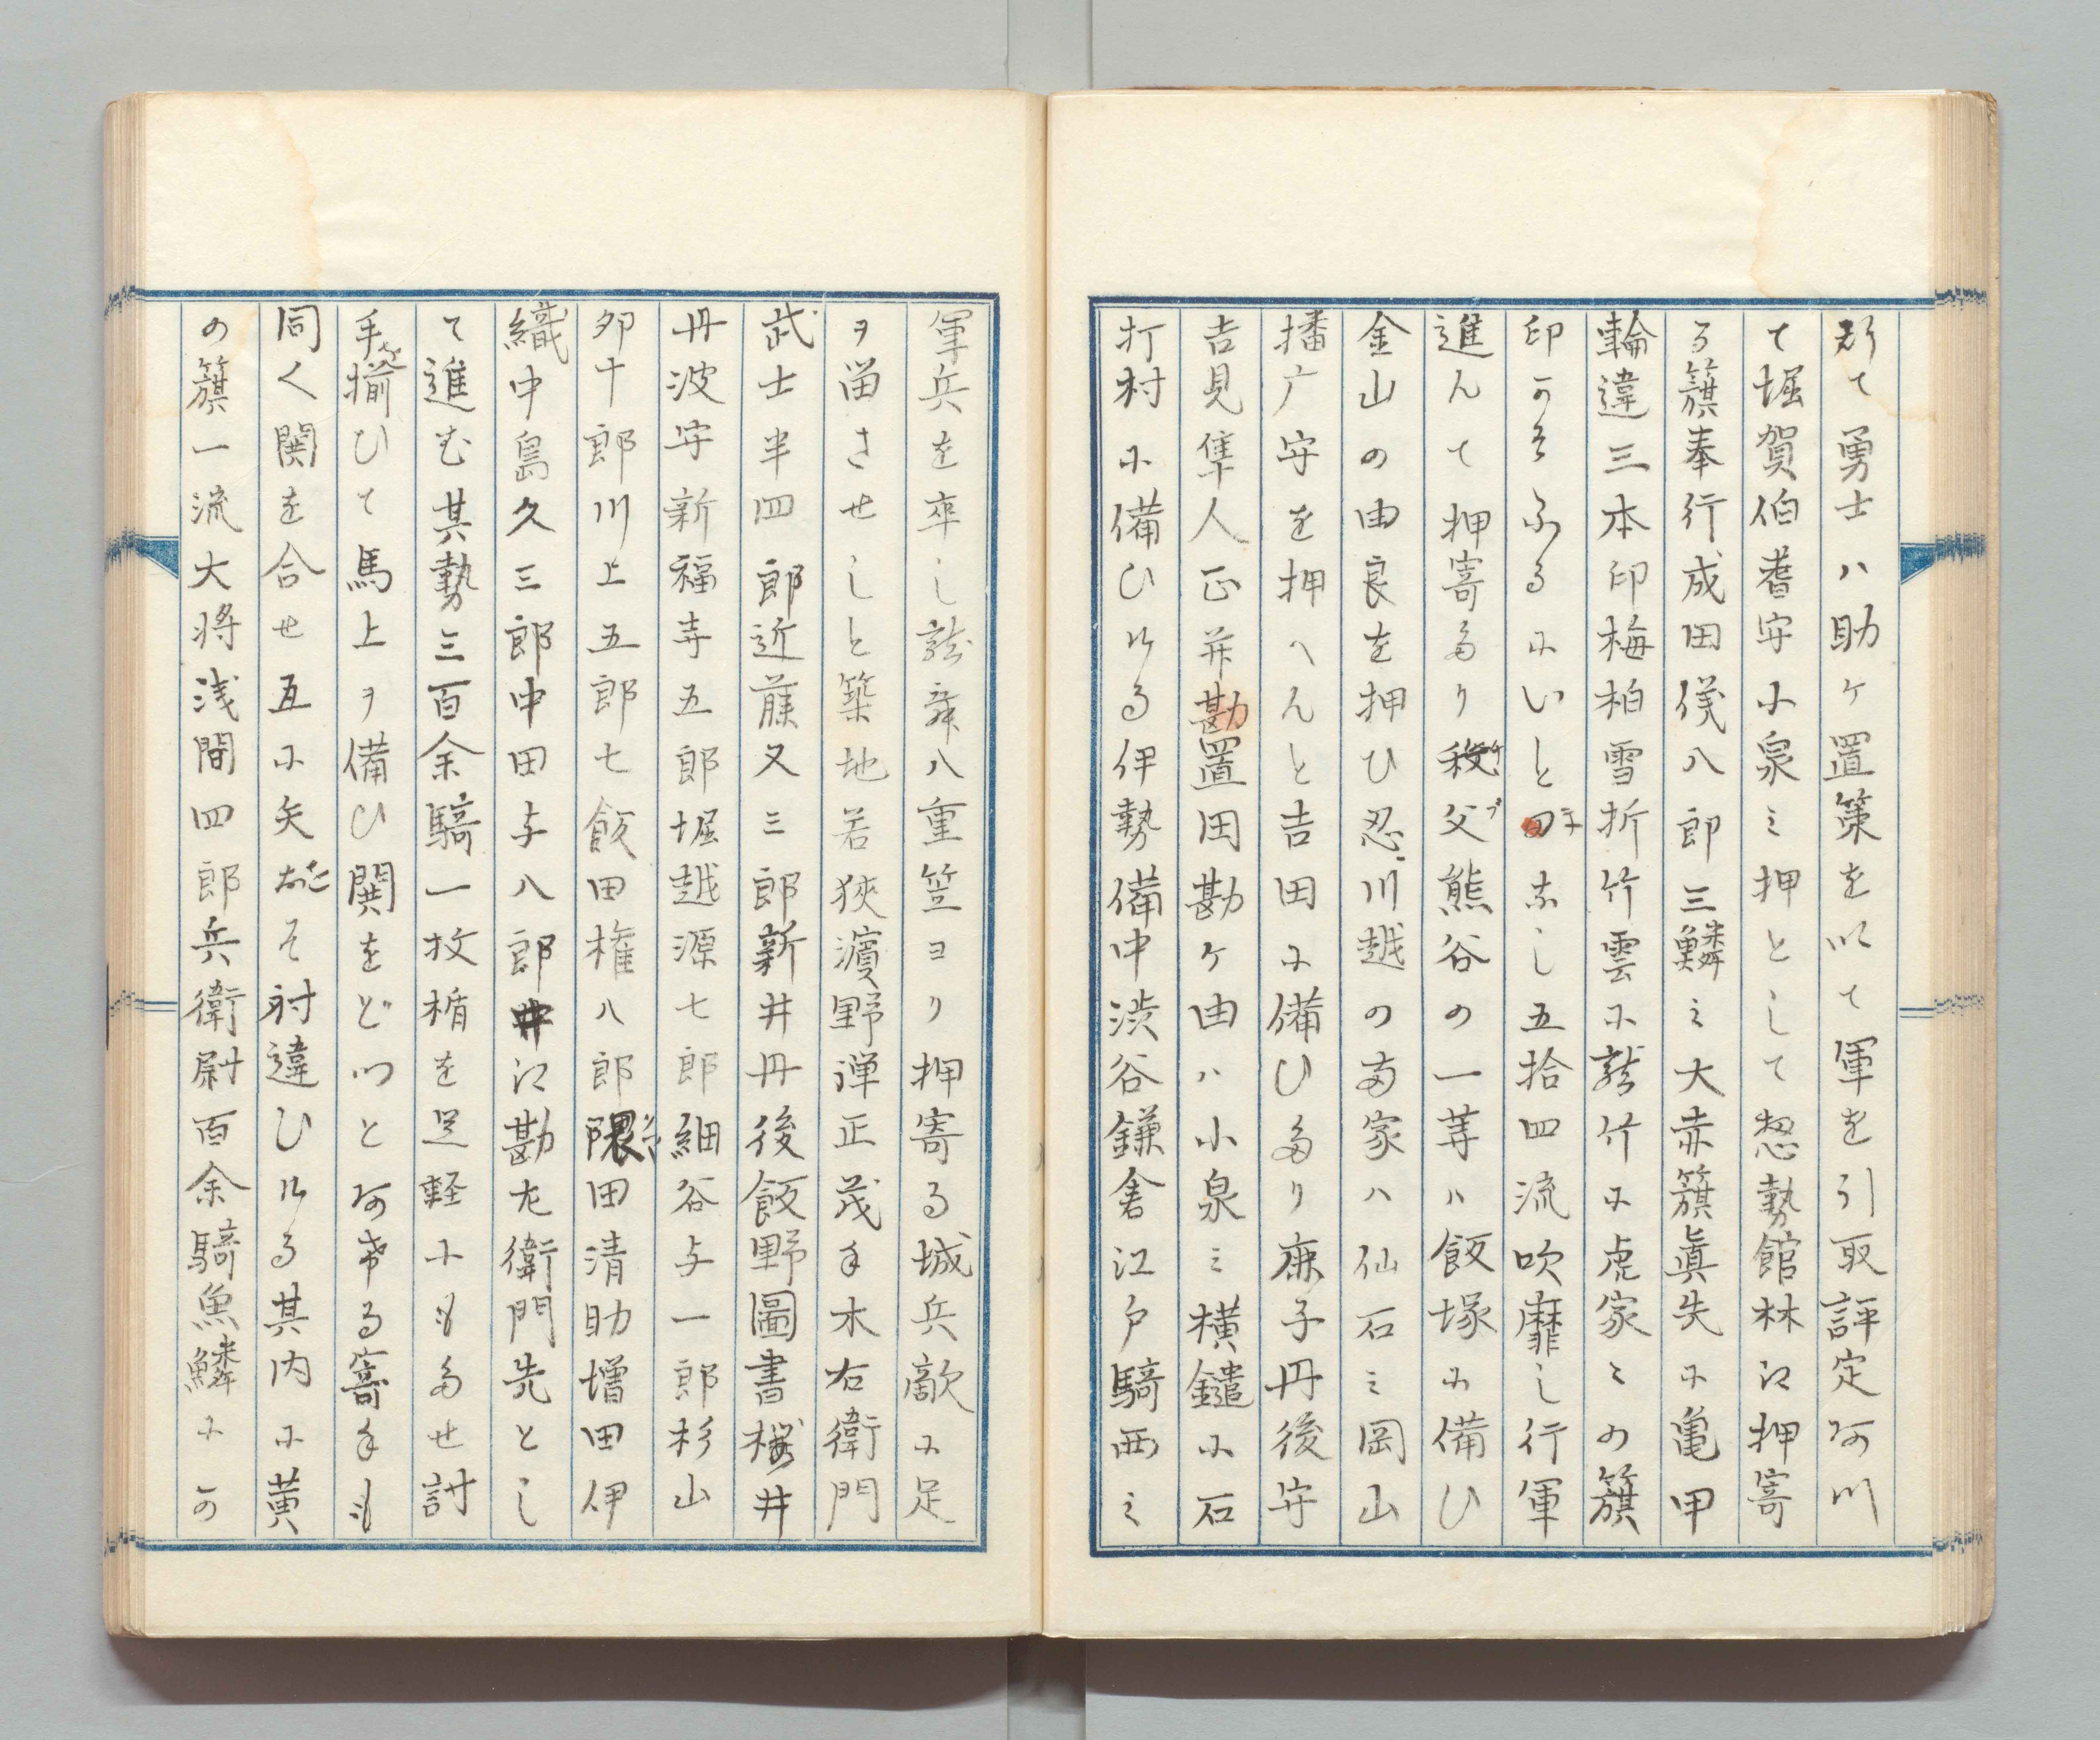 て勇士ハ助ケ置策を以て軍を引取評定阿川
て堀賀伯耆守小泉ミ押として惣勢館林江押寄
る籏奉行成田儀八郎三鱗ミ大赤籏眞先ニ亀甲
輪違三本印梅柏雪折竹竹雲ニ龍竹ニ虎家ミの籏
印かそふるニいと田なし五拾四流吹靡し行軍
進んて押寄たり秩父熊谷の一莑ハ飯塚ニ備ひ
金山の由良を押ひ忍川越の両家ハ仙石ミ岡山
播广守を押へんと吉田ニ備ひたり庶子丹後守
吉見隼人正并勘置田勘ケ由ハ小泉ミ横鑓ニ石
打村ニ備ひける伊勢備中渋谷鎌倉江戸騎西ミ
軍兵を卒し龍舞八重笠ヨリ押寄る城兵敵ニ足
ヲ畄させしと築地若狹濱野弾正茂手木右衛門
武士半四郎近藤又三郎新井丹後飯野圖書桜井
丹波守新福寺五郎堀越源七郎細谷与一郎杉山
卯十郎川上五郎七飯田権八郎隈田清助増田伊
織中島久三郎中田与八郎井江勘左衛門先とし
て進む其勢三百余騎一枚楯を足軽ニもたせ討
手揃ひて馬上ヲ備ひ閧をどつと阿希る寄手も
同く閧を合せ五ニ矢おこそ射違ひける其内ニ黄
の籏一流大将浅間四郎兵衛尉百余騎魚鱗ニか